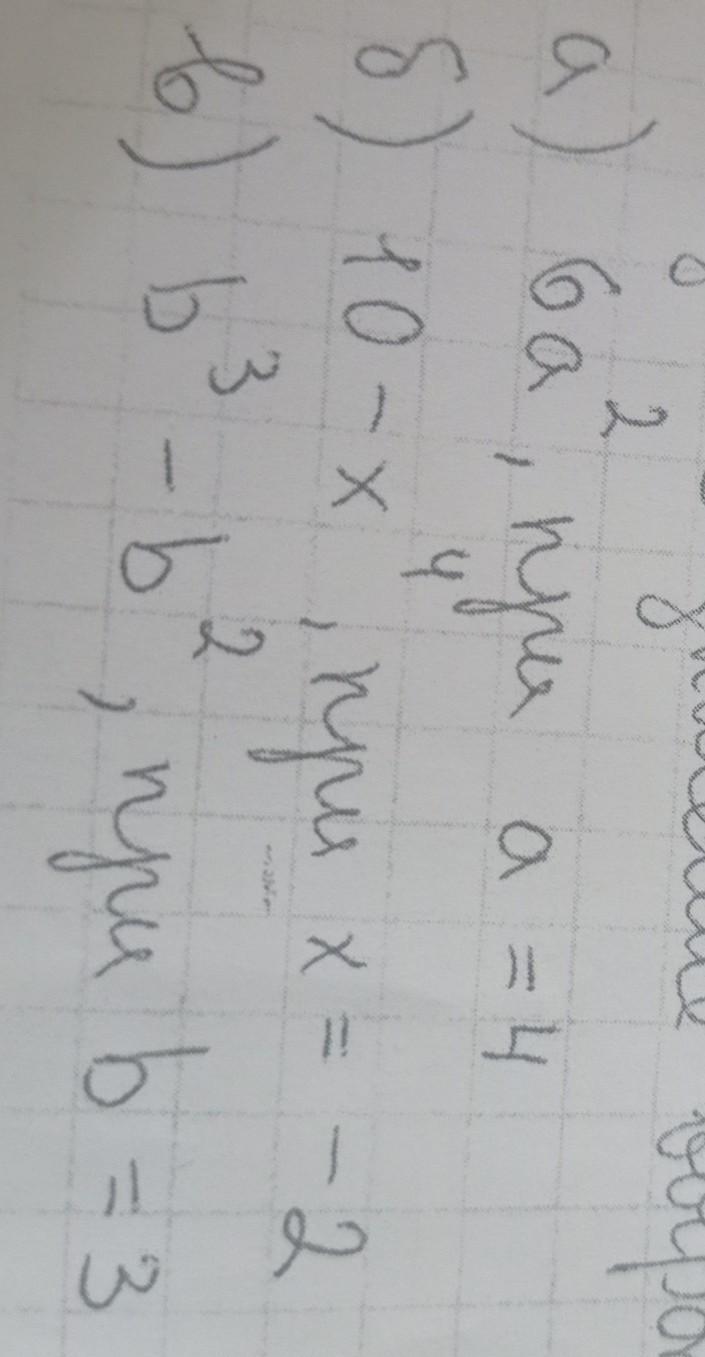 значение
а) 6a², при a = 4
б) 10 - x⁴, при x = -2
в) b³ - b², при b = 3